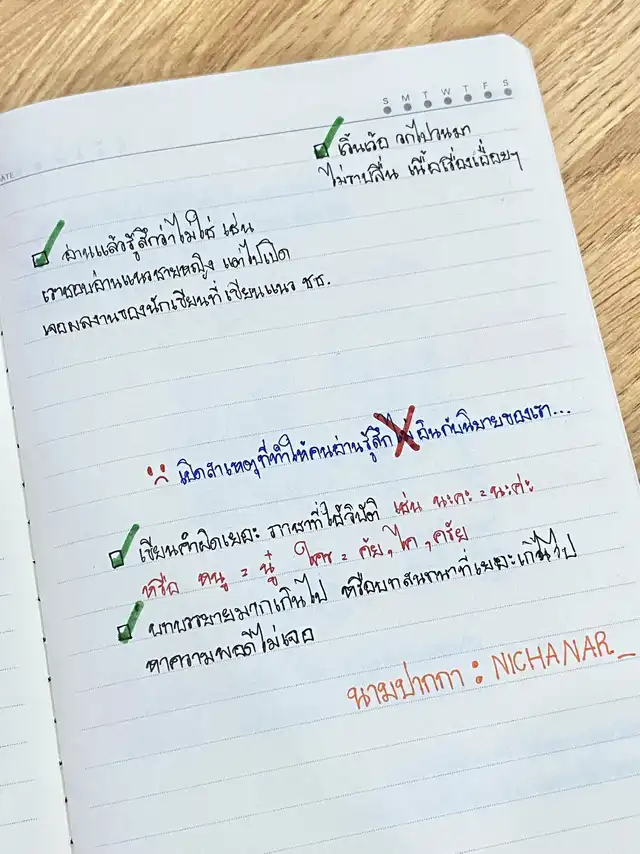 S M T W T F S
เวิ่นเว้อ วกไปวนมา
ไม่ราบลื่น เนื้อเรื่องเอื่อยๆ
อ่านแล้วรู้สึกว่าไม่ใช่ เช่น
เราชอบอ่านแนวชายหญิง แต่ไปเปิด
เจอผลงานของนักเขียนที่เขียนแนว ชช.
เปิดสาเหตุที่ทำให้คนอ่านรู้สึกไม่อินกับนิยายของเรา...
เขียนคำผิดเยอะ ภาษาที่ใช้วิบัติ เช่น นะคะ = นะค่ะ
หรือ หนู = นู๋ ใคร = คัย, ไค, ครัย
บทบรรยายมากเกินไป หรือบทสนทนาที่เยอะเกินไป
หาความพอดีไม่เจอ
นามปากกา : NICHANAR_